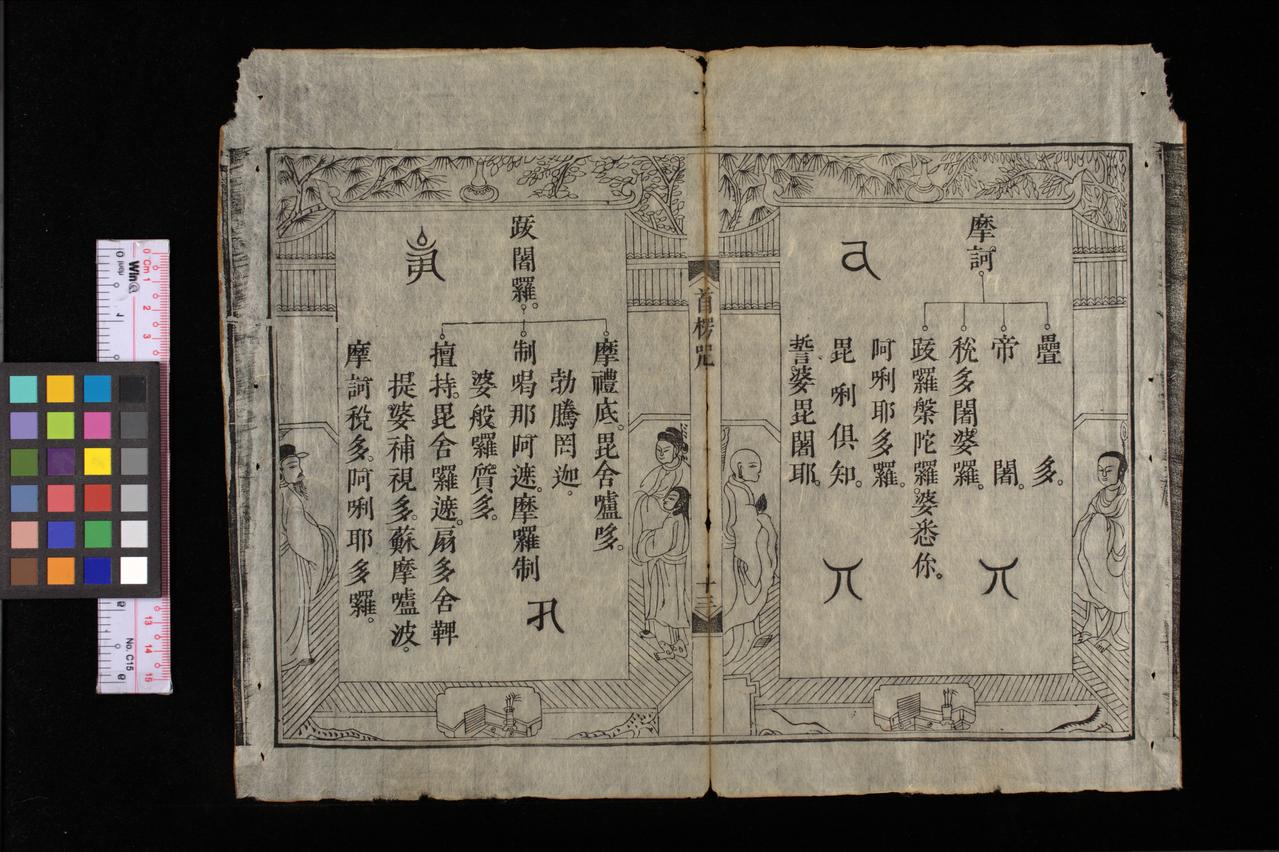 摩訶
疊多。
帝闍。
稅多闍婆羅。
跋羅槃陀羅婆悉你。
阿唎耶多羅。
毘唎俱知。
誓婆毘闍耶。
首楞咒
十三
跋闍羅。
摩禮底。毘舍嚧哆。
勃騰罔迦。
制喝那阿遮。摩囉制
婆般囉質多。
擅持。毘舍囉遮。扇多舍鞞
提婆補視多。蘇摩嚧波。
摩訶稅多。阿唎耶多囉。